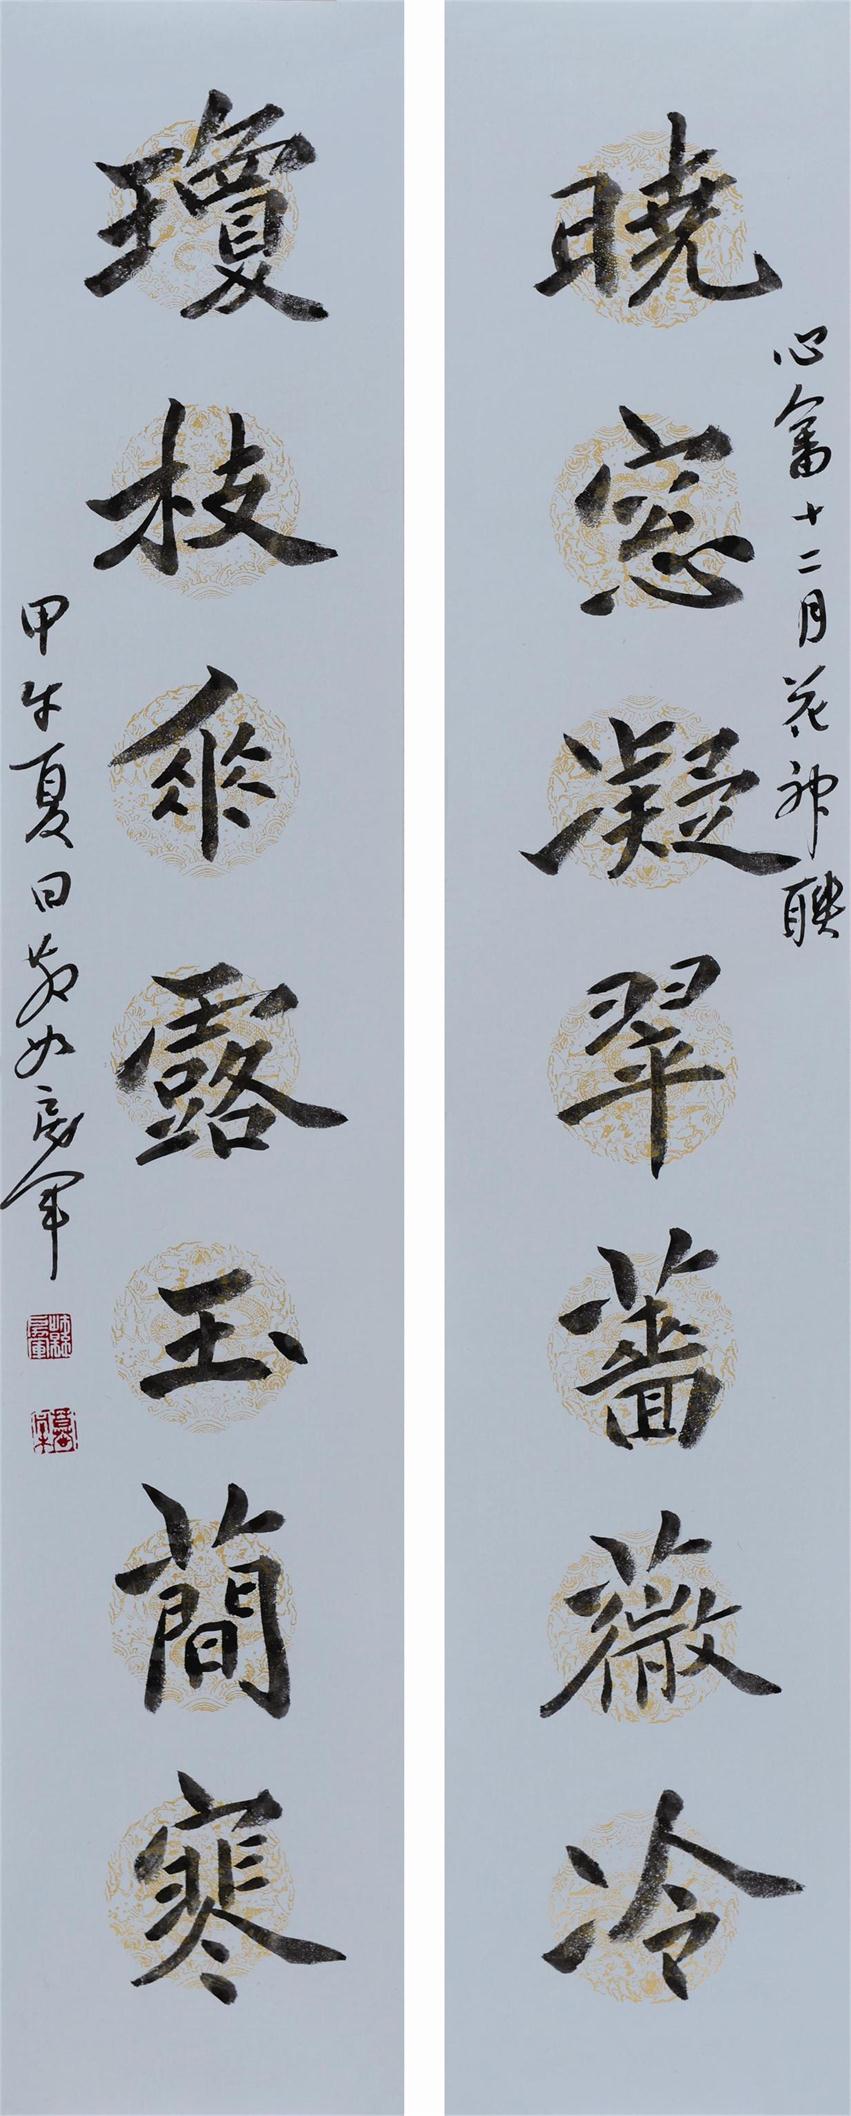 曉窓凝翠薔薇冷
心畬十二月花神聯
瓊枝露玉蕳寒
甲午夏日房軍